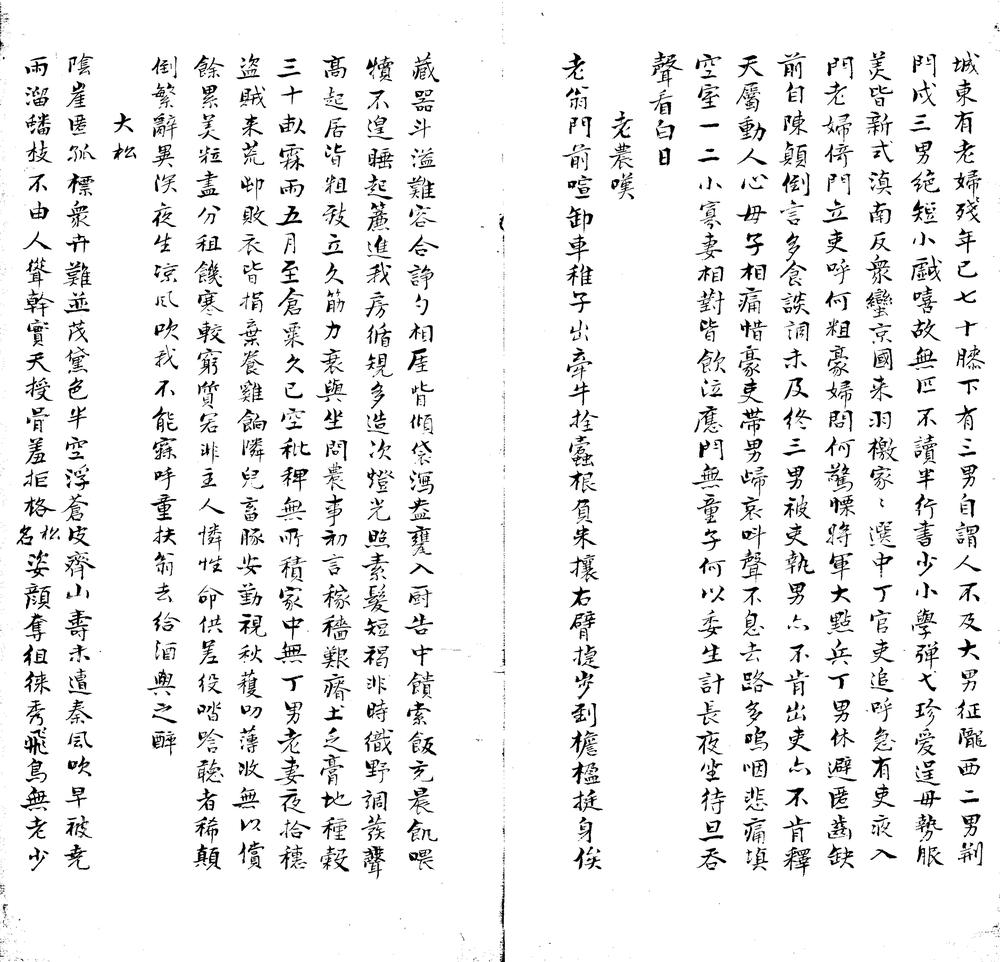 城東有老婦殘年已七十膝下有三男自謂人不及大男征隴西二男荆
門戍三男絶短小戲嘻故無匹不讀半行書少小學弾弋珍愛逞毋勢服
美皆新式滇南反衆蠻京國来羽檄家〻選中丁官吏追呼急有吏夜入
門老婦倚門立吏呼何粗豪婦問何驚慄將軍大點兵丁男休避匿齒缺
前自陳顛倒言多食談調未及終三男被吏執男亦不肯出吏亦不肯釋
天屬動人心毋子相痛惜豪吏帶男歸哀呌聲不息去路多嗚咽悲痛填
空室一二小寡妻相對皆飲泣應門無童子何以委生計長夜坐待旦吞
聲看白日
老農嘆
老翁門前喧卸車稚子出牽牛拴蠹根負朱攘右臂捷步到檐楹挺身俟
藏器斗溢難容合諍勺相厓皆傾袋瀉盎甕入厨告中饋索飯充晨飢喂
犢不遑睡起簾進我房循規多造次燈光照素髮短褐非時織野調羨聾
髙起居皆粗致立久筋力衰與坐問農事初言稼穡艱瘠土乏膏地種穀
三十畝霖雨五月至倉粟久已空秕稗無所積家中無丁男老妻夜拾穗
盗賊来荒邨敗衣皆捐棄養雞餉隣兒畜豚安勤視秋穫叨薄收無以償
餘累美粒盡分租饑寒較窮質若非主人憐性命供差役唶唫聽者稀顛
倒繁辭異深夜生凉風吹我不能寐呼童扶翁去給酒與之醉
大松
陰崖匿孤標衆卉難並茂黛色半空浮蒼皮齊山壽未遭秦風吹早被堯
雨溜蟠枝不由人聳幹實天授骨羞拒格松名姿顔奪徂徠秀飛鳥無老少